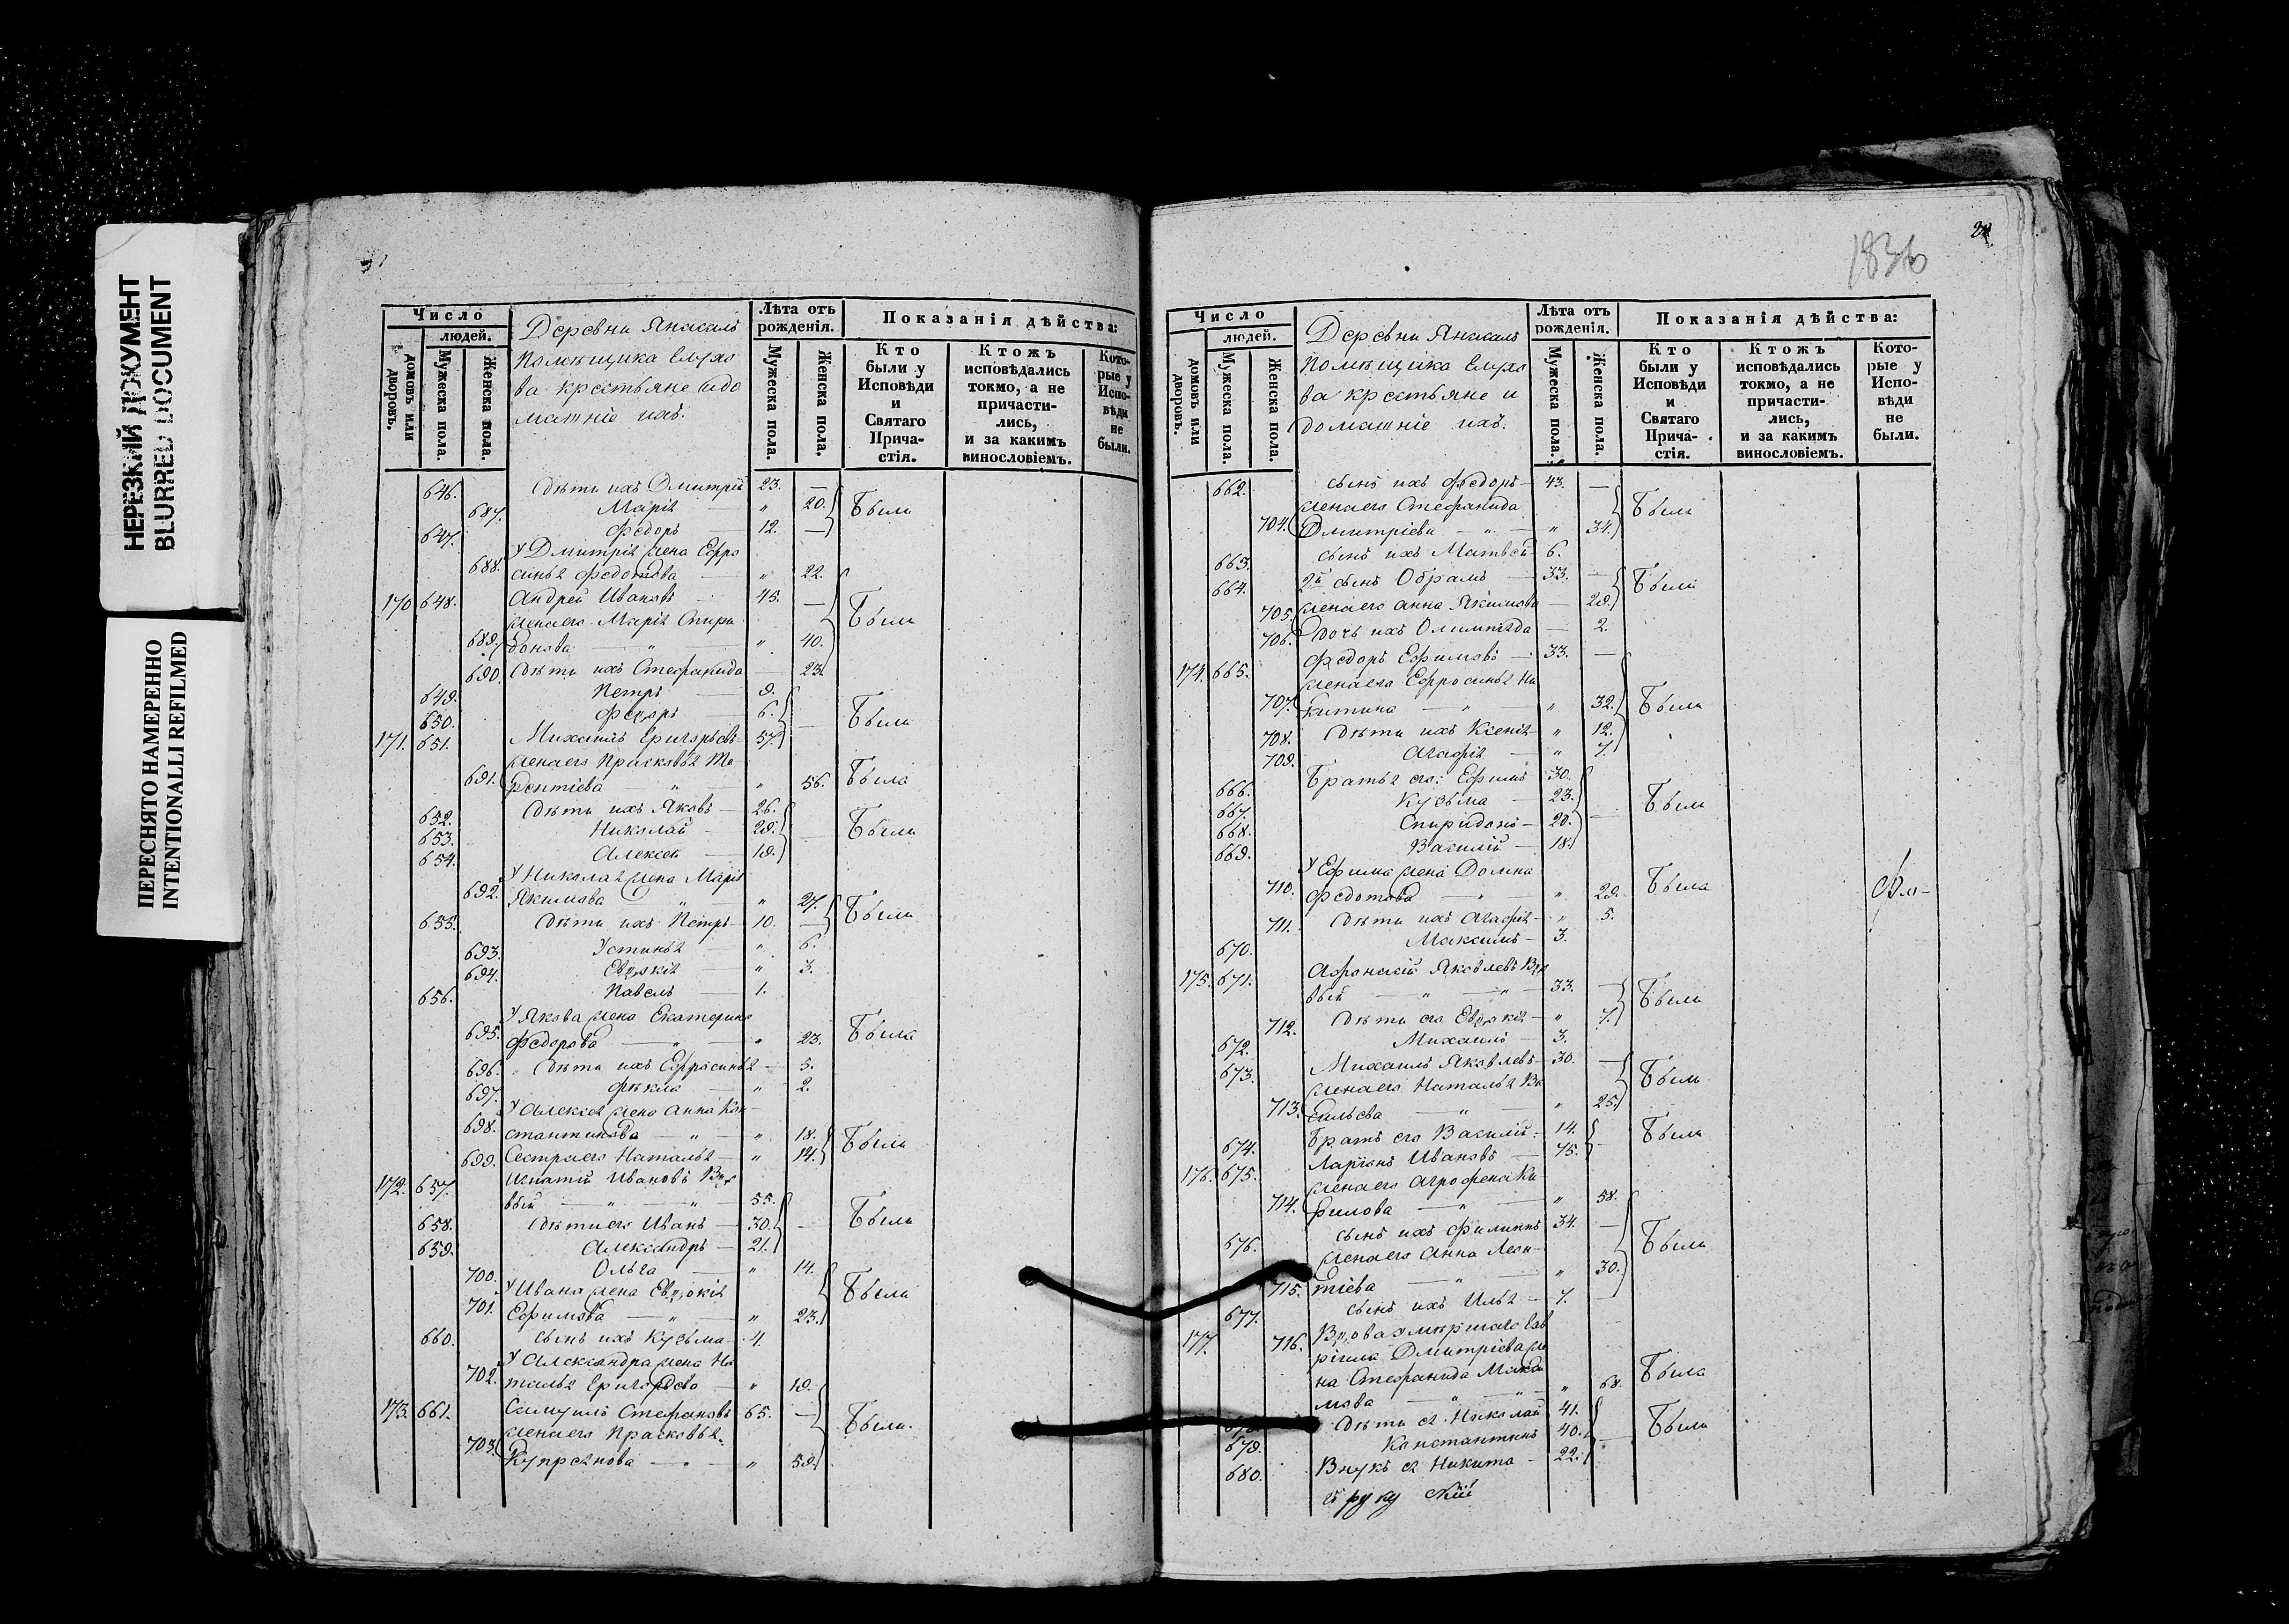 НЕРЕЗКИЙ ДОКУМЕНТ
BLURRED DOCUMENT
ПЕРЕСНЯТО НАМЕРЕННО
INTENTIONALLI REFILMED
Число
людей.
домовъ или дворовъ.
Мужеска пола.
Женска пола.
Деревни
Помѣщика
ва крестьяне и до
машніе ихъ.
Лѣта отъ рожденія.
Мужеска пола.
Женска пола.
Показанія дѣйства:
Кто были у Исповѣди и Святаго Прича-стія.
Ктожъ исповѣдались токмо, а не причасти-лись, и за какимъ винословіемъ.
Кото-рые у Испо-вѣди не были.
646. Дѣти ихъ Дмитрій 23. —
687. Марія — " 20. Были
647. Ѳедоръ 12. —
У Дмитрія жена Ефро
688. синья Ѳедотова — " 22.
170 648. Андрей Ивановъ — 45. — Были
жена его Марія Спири
689. донова — " — " 40.
690. Дѣти ихъ Стефанида — 23.
649. Петръ — 9.
650. Ѳедоръ — 6. — Были
171. 651. Михаилъ Григорьевъ 57.
жена его Прасковья Те
691. рентіева " — " 56. Была
652. Дѣти ихъ Яковъ — 26.
653. Николай — 28. — Были
654. Алексей — 19.
У Николая жена Марія
692. Якимова " — " 27. Были
655. Дѣти ихъ Петръ — 10. —
693. Устинья " 6.
694. Евдокія " 3.
656. Павелъ — 1.
У Якова жена Екатерина
695. Ѳедорова — " — " 23. Была
696. Дѣти ихъ Ефросинья — 5.
697. Ѳекла — " 2.
У Алексея жена Анна Кон
698. стантинова — " — " 18. Были
699. Сестра его Наталья — " 14.
172. 657. Игнатій Ивановъ Вдо
вый — " — " 55.
658. Дѣти его Иванъ — 30. — Были
659. Александръ — 21.
700. Ольга — " 14.
У Ивана жена Евдокія Были
701. Ефимова — " — " 23.
660. Сынъ ихъ Кузьма — 4.
У Александра жена На
702. талья Григорьева — " 19.
173. 661. Самуилъ Стефановъ 65. — Были.
жена его Прасковья
703. Купреянова — " 59.
1836
Число
людей.
домовъ или дворовъ.
Мужеска пола.
Женска пола.
Деревни
Помѣщика
ва крестьяне и
домашніе ихъ.
Лѣта отъ рожденія.
Мужеска пола.
Женска пола.
Показанія дѣйства:
Кто были у Исповѣди и Святаго Прича-стія.
Ктожъ исповѣдались токмо, а не причасти-лись, и за какимъ винословіемъ.
Кото-рые у Испо-вѣди не были.
662. Сынъ ихъ Ѳедоръ — 43. —
жена его Стефанида Были
704. Дмитріева — " — " 34.
663. Сынъ ихъ Матвей 6.
664. 2й сынъ Обрамъ — 33. — Были
705. жена его Анна Якимова — 29.
706. Дочь ихъ Олимпіада — 2.
174. 665. Ѳедоръ Ефимовъ — 33. —
жена его Ефросинья Ни
707. китина — " — " 32. Были
708. Дѣти ихъ Ксенія — " 12.
709. Агафія — " 7.
666. Братья его: Ефимъ 30.
667. Кузьма — 23. Были
668. Спиридонъ — 20. —
669. Василій — 18.
У Ефима жена Домна
710. Ѳедотова — " — " 29. Была
711. Дѣти ихъ Агафія — " 5.
670. Максимъ — 3.
175. 671. Афонасій Яковлевъ Вдо
вый — " — " — 33. — Были
712. Дѣти его Евдокія — " 7.
672. Михаилъ — 3.
673. Михаилъ Яковлевъ — 30. —
жена его Наталья Ва Были
713. сильева — " — " 25.
674. Братъ его Василій — 14. Были
176. 675. Ларіонъ Ивановъ — 75. —
жена его Агрофена Ки
714. рилова — " — " 58.
676. сынъ ихъ Филиппъ 34. —
жена его Анна Леон Были
715. тіева — " — " 30.
677. сынъ ихъ Илья — 7. —
177. 716. Вдова умершаго Гав
ріила Дмитріева же
на Стефанида Макси
мова " — " — " 68. Была
Дѣти ея Николай 41.
679. Константинъ 40. — Были
680. Внукъ ея Никита — 22.